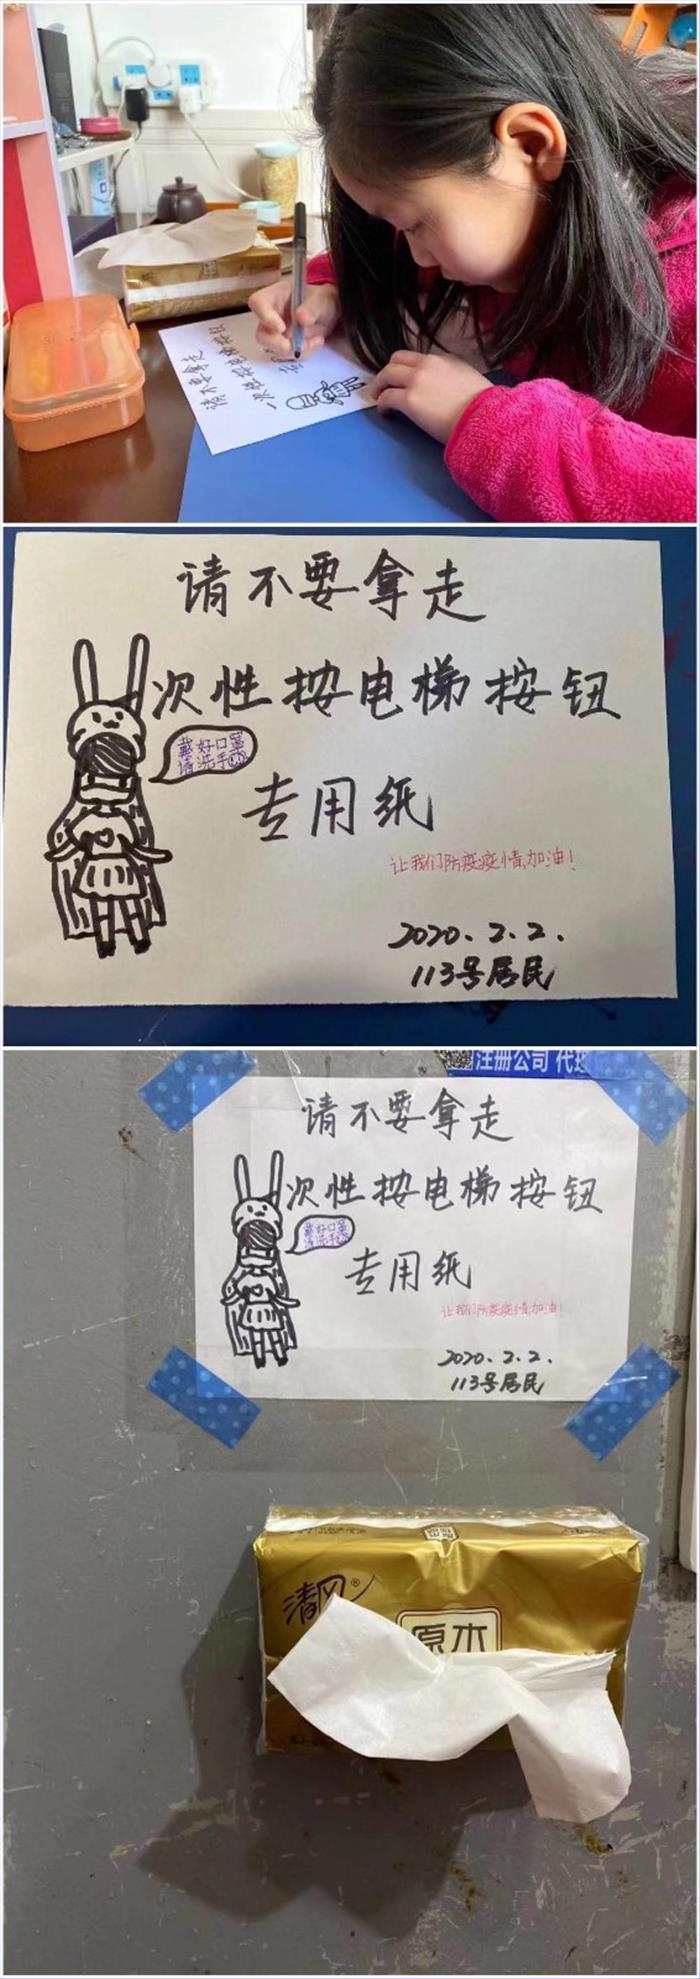 请不要拿走
一次性按电梯按钮
请不要拿走
次性按电梯按钮
戴好口罩
请洗手
专用纸
让我们防疫疫情,加油!
2020.2.2.
113号居民
注册公司 代理
请不要拿走
次性按电梯按钮
戴好口罩
请洗手
专用纸
让我们防疫疫情,加油!
2020.2.2.
113号居民
清风®
原木